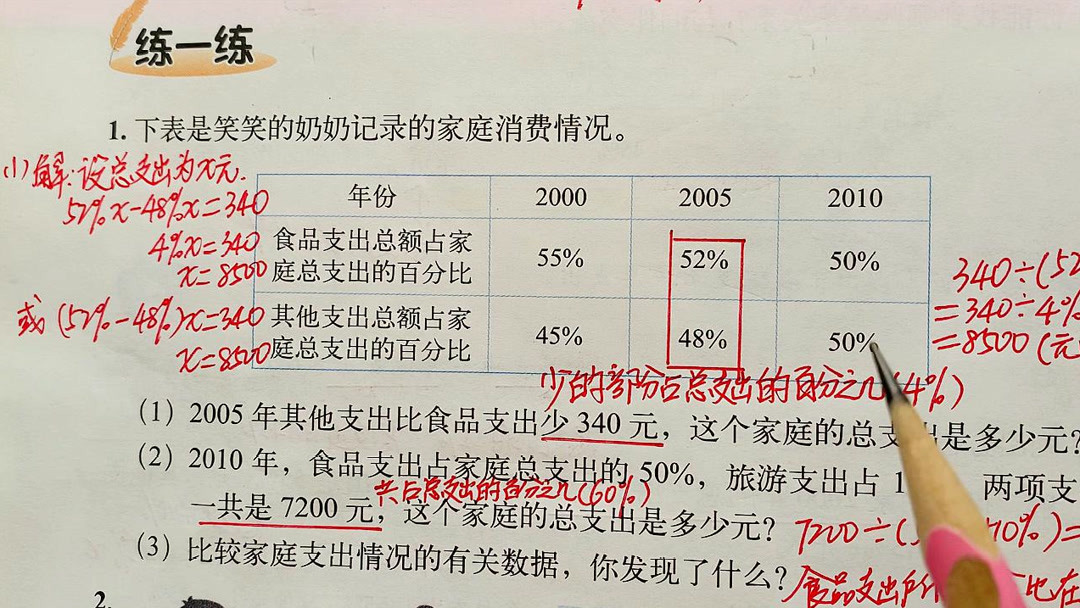 练一练
1. 下表是笑笑的奶奶记录的家庭消费情况。
(1)解:设总支出为x元.
52%x-48%x=340
4%x=340
x=8500
或 (52%-48%)x=340
x=8500
年份 2000 2005 2010
食品支出总额占家庭总支出的百分比 55% 52% 50%
其他支出总额占家庭总支出的百分比 45% 48% 50%
340÷(52
=340÷4%
=8500(元
少的部分占总支出的百分之几(4%)
(1) 2005 年其他支出比食品支出少 340 元，这个家庭的总支出是多少元？
(2) 2010 年，食品支出占家庭总支出的 50%，旅游支出占 1 两项支
共占总支出的百分之几(60%)
一共是 7200 元，这个家庭的总支出是多少元？
7200÷( 10%)=
(3) 比较家庭支出情况的有关数据，你发现了什么？
食品支出占 比在
2.